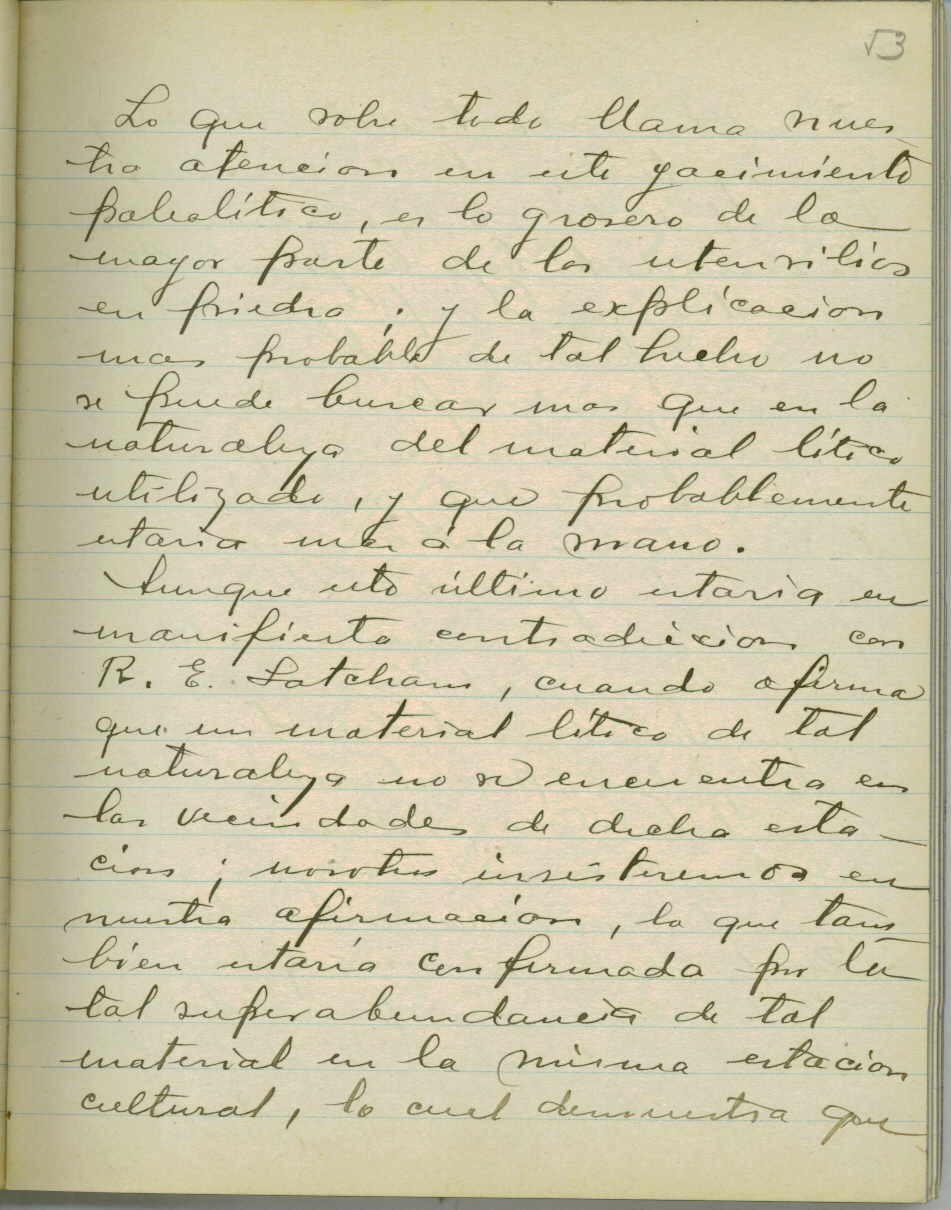 √3
Lo que sobre todo llama nues
tra atencion en este yacimiento
paleolítico, es lo grosero de la
mayor parte de los utensilios
en piedra ; y la explicacion
mas probable de tal hecho no
se puede buscar mas que en la
naturaleza del material lítico
utilizado, y que probablemente
estaria mas á la mano.
Aunque esto último estaria en
manifiesta contradiccion con
R. E. Latcham, cuando afirma
que un material lítico de tal
naturaleza no se encuentra en
las vecindades de dicha esta-
cion ; nosotros insistiremos en
nuestra afirmacion, lo que tam
bien estaria confirmada por la
tal superabundancia de tal
material en la misma estacion
cultural, lo cual demuestra que